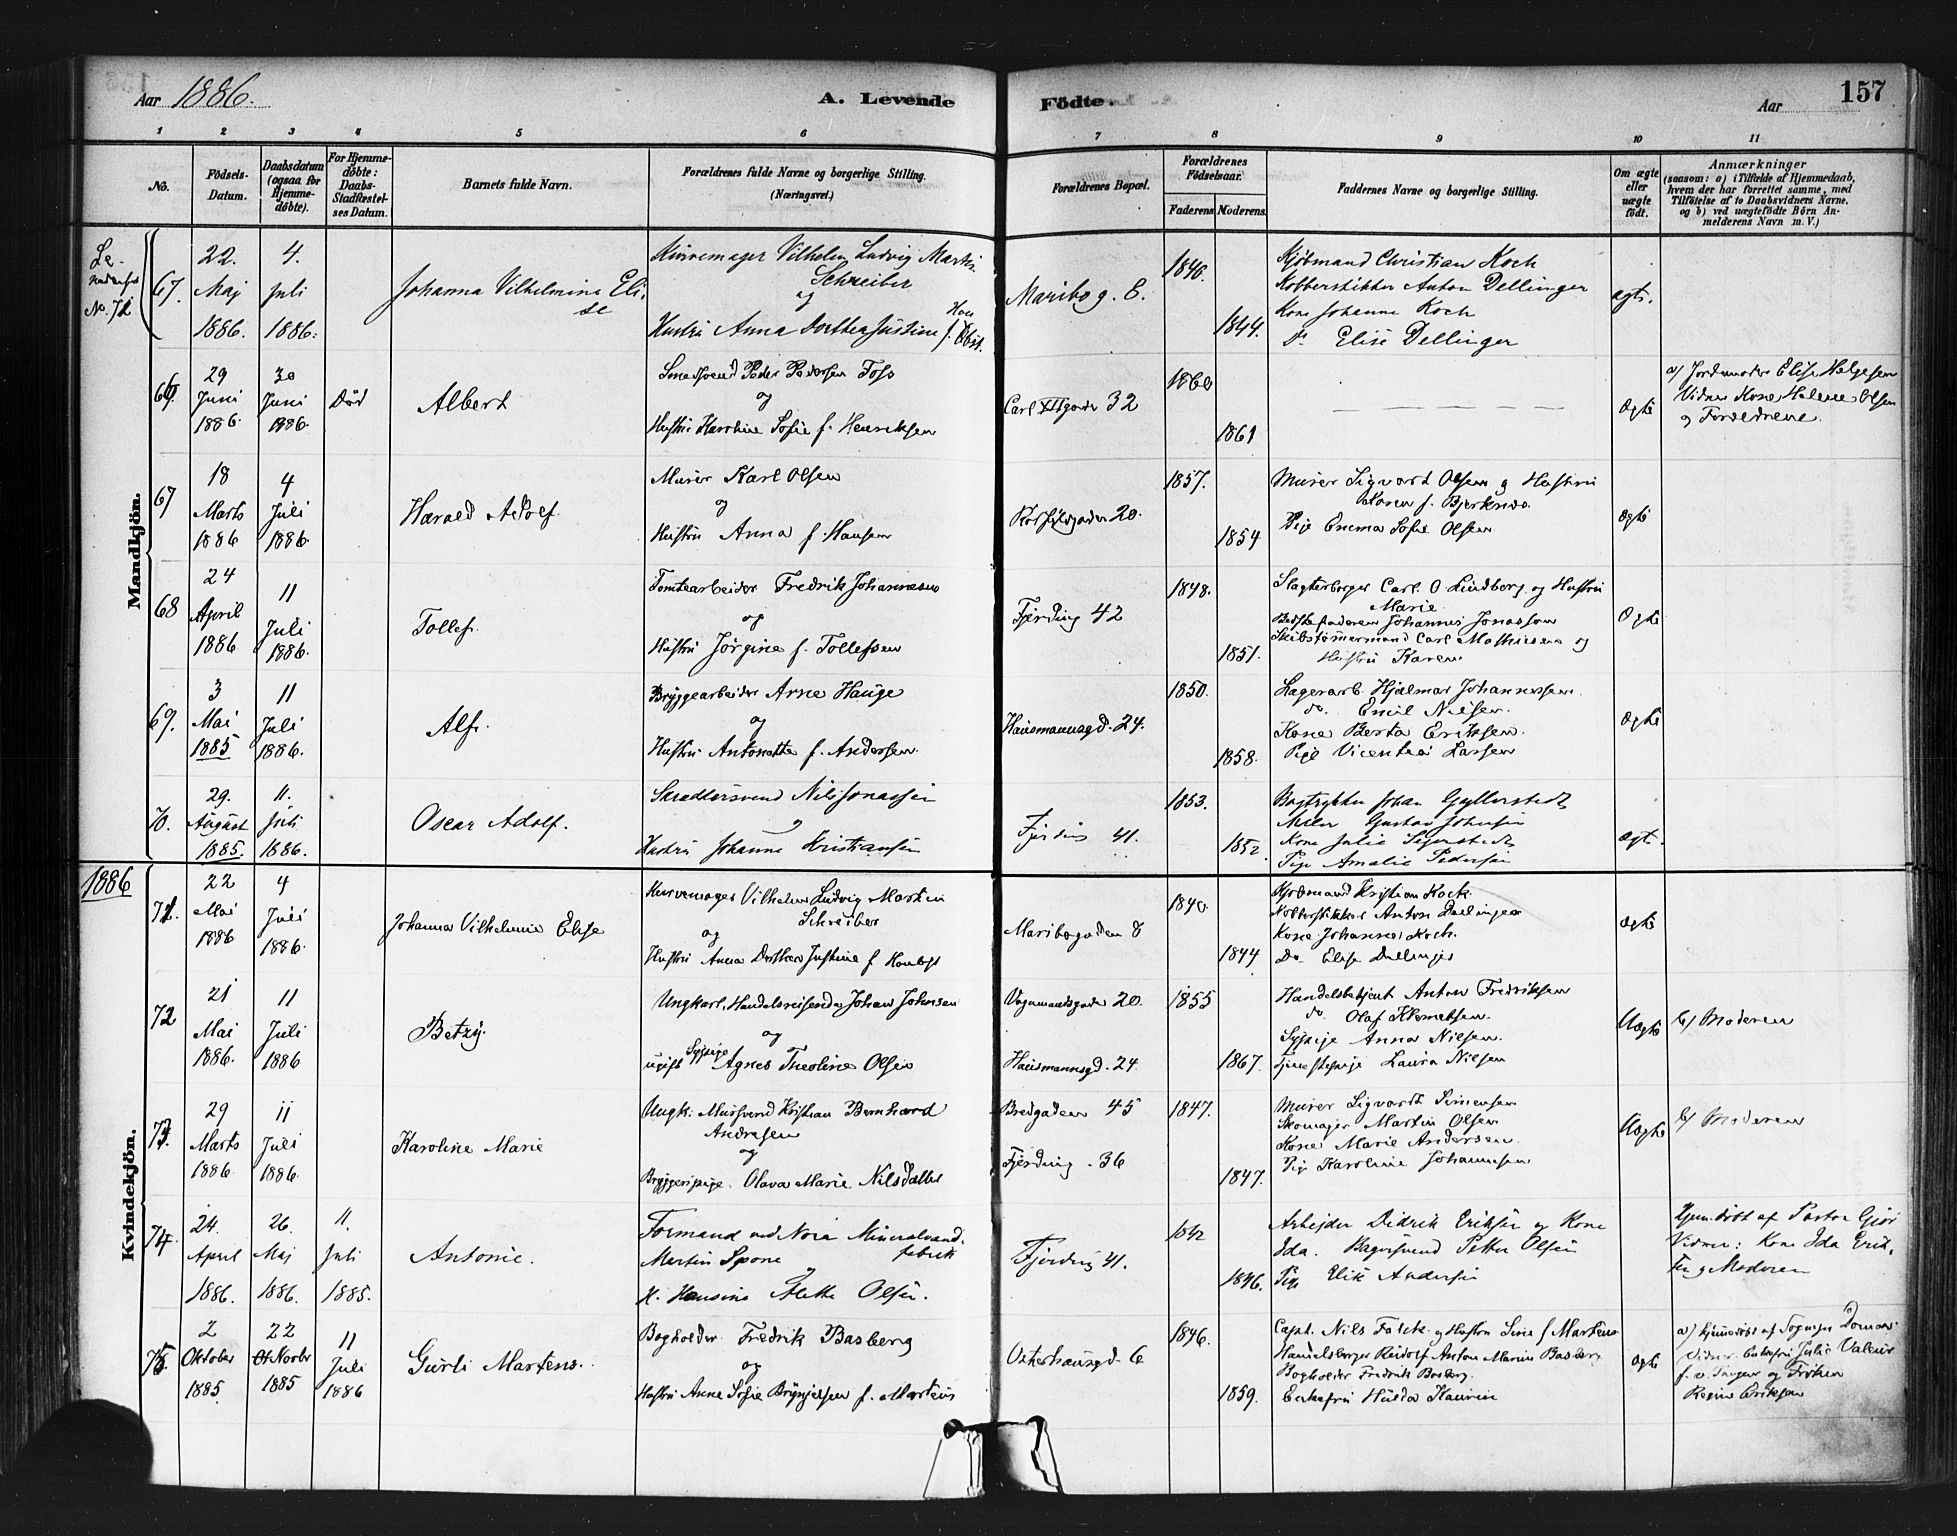 Aar 1886.
A. Levende Födte.
Aar
157
1 2 3 4 5 6 7 8 9 10 11
No.
Födsels-
Datum.
Daabsdatum
(ogsaa for
Hjemme-
döbte).
For Hjemme-
döbte:
Daabs-
Stadfæstel-
ses Datum.
Barnets fulde Navn.
Forældrenes fulde Navne og borgerlige Stilling.
(Næringsvei.)
Forældrenes Bopæl.
Forældrenes
Födselsaar.
Faderens.
Moderens.
Faddernes Navne og borgerlige Stilling.
Om ægte
eller
uægte
födt.
Anmærkninger
(saasom: a) i Tilfælde af Hjemmedaab,
hvem der har forrettet samme, med
Tilföielse af to Daabsvidners Navne,
og b) ved uægtefödte Börn An-
melderens Navn m. V.)
Mandkjön.
No. 72
67.
22.
Maj
1886.
4.
Juli
1886.
Johanna Vilhelmine Eli-
se
Kurvemager Vilhelm Ludvig Martin
Schreiber
og
Hustru Anna Dorthea Justine f.
Maribog. 8.
1840.
1844.
Kjöbmand Christian Koch
Kobberstikker Anton Dellinger
Kone Johanne Koch
Do Elise Dellinger
ægte.
66.
29
Juni
1886.
30
Juni
1886.
Död
Albert
Smedsvend Peder Pedersen Foss
og
Hustru Karoline Sofie f. Henriksen
Carl XII gade 32
1860
1861
Ægte
a) Jordemoder Elise Helgesen
Vidner Kone Helene Olsen
og Forældrene.
67
18
Marts
1886
4
Juli
1886.
Harald Adolf.
Murer Karl Olsen
og
Hustru Anna f. Hansen
20.
1857.
1854
Murer Sigvart Olsen og Hustru
Maren f. Bjerknes.
Pige Emma Sofie Olsen
Ægte
68
24
April
1886.
11
Juli
1886.
Tollef.
Tomtearbeider Fredrik Johannesen
og
Hustru Jörgine f. Tollefsen
Fjerding 42
1848.
1851.
Slagterborger Carl O Lindberg og Hustru
Marie.
Johannes Jonassen
Skibstömmermand Carl Mathiesen og
Hustru Karen
Ægte
69.
3
Mai
1885
11
Juli
1886.
Alf.
Bryggearbeider Arne Hauge
og
Hustru Antonette f. Andersen.
Hausmannsgd. 24.
1850.
1858.
Lagerarb. Hjalmar Johannessen.
do. Emil Nielsen.
Kone Berta Eriksen.
Pige Vicentea Larsen
Ægte
70.
29.
August
1885.
11.
Juli
1886.
Oscar Adolf.
Skreddersvend Nils Jonassen
og
Hustru Johanne Kristiansen
Fjerding 41.
1853.
1852.
Bogtrykker Johan Gyllerstedt
Maler Gustav Johnsen
Kone Julie
Pige Amalie Pedersen
ægte.
1886
Kvindekjön.
71.
22
Mai
1886
4
Juli
1886.
Johanna Vilhelmine Elise
Kurvemager Vilhelm Ludvig Martin
Schreiber
og
Hustru Anna Dorthea Justine f.
Maribogaden 8
1840.
1844
Kjöbmand Kristian Koch.
Kobberstikker Anton Dellinger
Kone Johanne Koch.
Do. Elise Dellinger
Ægte
72
21
Mai
1886.
11
Juli
1886
Betzy.
Ungkarl, Handelsreisende Johan Johnsen
og
ugift Sypige Agnes Theoline Olsen
20.
Hausmannsgd. 24.
1855
1867.
Handelsbetjent Anton Fredriksen
do. Olaf Klemetsen.
Sypige Anna Nielsen.
Tjenestepige Laura Nielsen
Uægte
b) Moderen
73.
29
Marts
1886.
11
Juli
1886.
Karoline Marie
Ungk. Mursvend Kristian Bernhard
Andresen
og
Bryggeripige. Olava Marie Nilsdatter
Bredgaden 45
Fjerding. 36
1847.
1847.
Murer Sigvardt Simensen
Skomager Martin Olsen
Kone Marie Andersen.
Pige Karoline Johannesen
Uægte
b) Moderen
74.
24.
April
1886.
26.
Maj
1886.
11.
Juli
1885.
Antonie.
Formand ved Nora Mineralvand-
fabrik
Martin Spone
og
H. Hansine Alette Olsen.
Fjerding 41.
1842
1846.
Arbejder Didrik Eriksen og Kone
Ida. Bagersvend Petter Olsen
Pige Elise Andersen
Hjemdöbt af Pastor
Vidner: Kone Ida Erik-
sen og Moderen
75.
2
Oktober
1885.
22
Novbr
1885
11
Juli
1886
Gurli Martens.
Bogholder Fredrik Basberg
og
Hustru Anne Sofie Brynjelsen f. Martens
Osterhausgd. 6
1846.
1859.
Capt. Nils Falck og Hustru Sina f. Martens
Handelsborger Rudolf Anton Marius Basberg
Bogholder Fredrik Basberg.
Enkefru Hulda Haurin
Ægte
a) hjemmedöbt af Sogneprest
Vidner: Enkefru Julie Valeur
f. v. Tangen og Fröken
Regine Eriksen